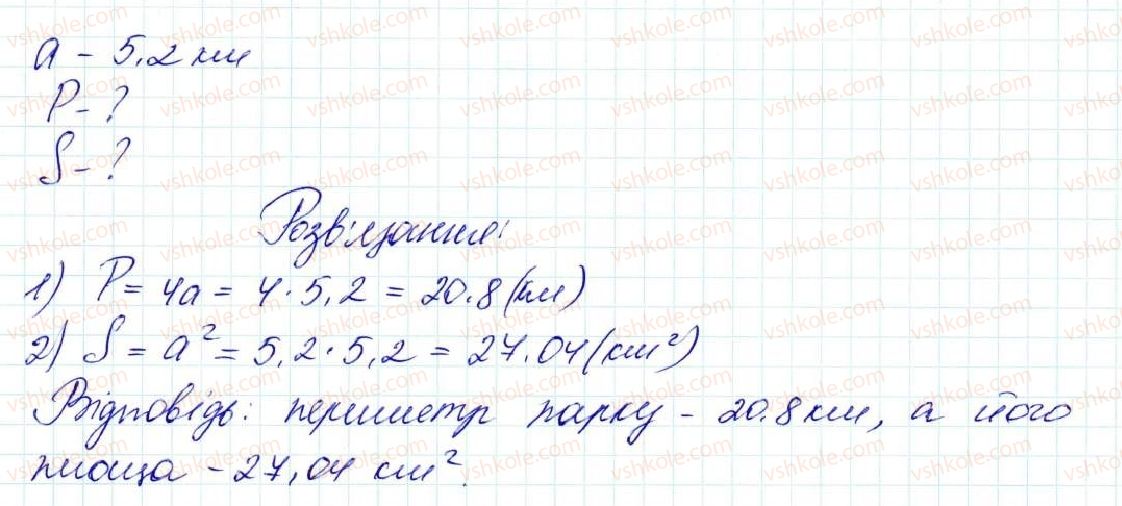 a - 5,2 км
P - ?
S - ?
Розв'язання:
1) P = 4a = 4 · 5,2 = 20.8 (км)
2) S = a² = 5,2 · 5,2 = 27.04 (км²)
Відповідь: периметр парку - 20.8 км, а його
площа - 27,04 см².